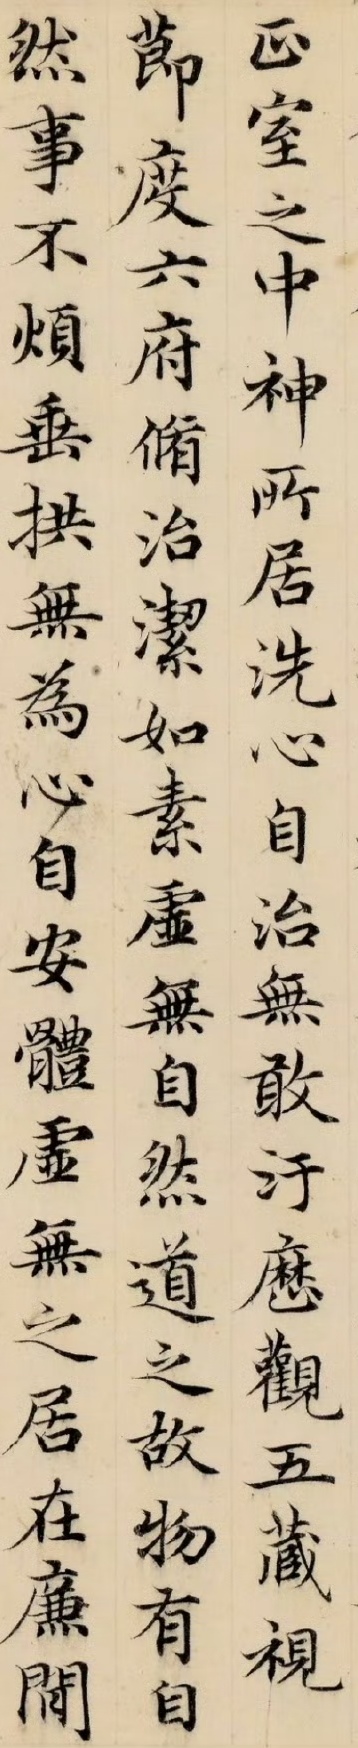 正室之中神所居洗心自治無敢汙歷觀五藏視
節度六府脩治潔如素虛無自然道之故物有自
然事不煩垂拱無為心自安體虛無之居在廉間